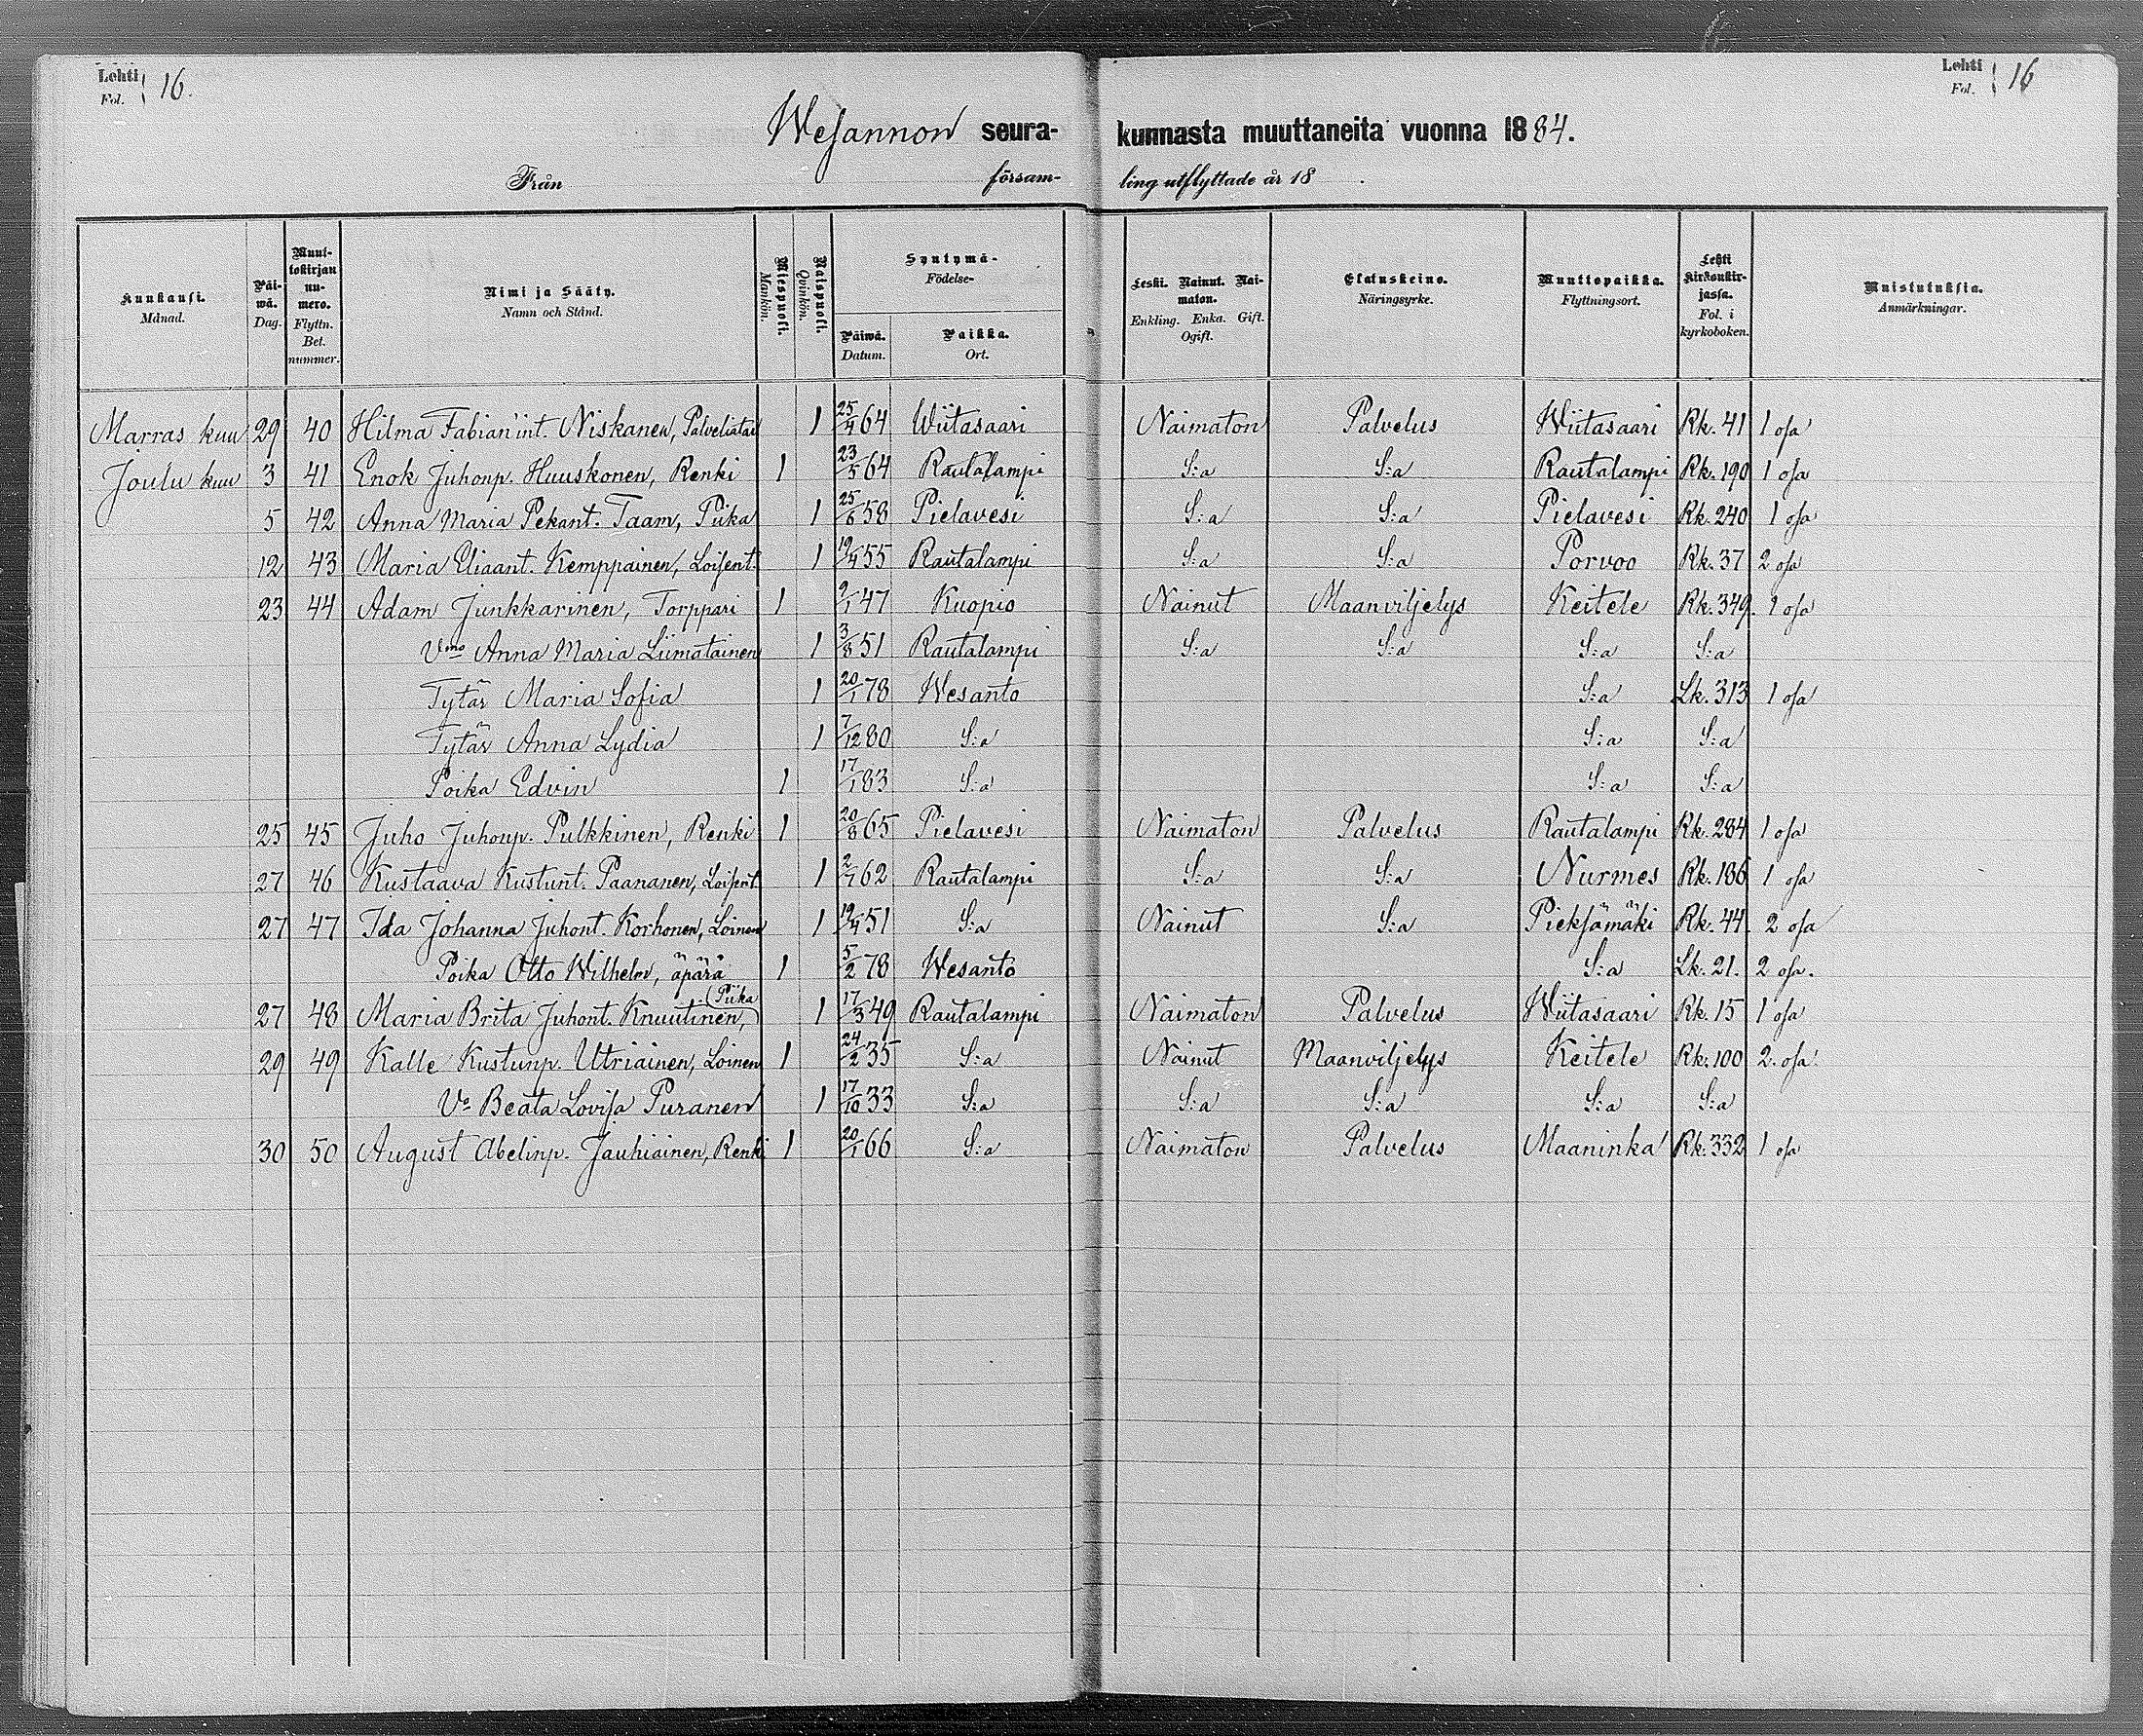 Lehti Fol. } 16.
Lehti Fol. } 16
Wesannon seura- kunnasta muuttaneita vuonna 1884.
Från försam- ling utflyttade år 18 .
Kuukausi. Månad. | Päi-wä. Dag. | Muut-tokirjan nu-mero. Flyttn. Bet. nummer. | Nimi ja Sääty. Namn och Stånd. | Miespuoli. Mankön. | Naispuoli. Qvinkön. | Syntymä- Födelse- Päiwä. Datum. | Paikka. Ort. | Leski. Nainut. Nai-maton. Enkling. Enka. Gift. Ogift. | Elatuskeino. Näringsyrke. | Muuttopaikka. Flyttningsort. | Lehti kirkonkir-jassa. Fol. i kyrkoboken. | Muistutuksia. Anmärkningar.
Marras kuu 29 40 Hilma Fabian'int. Niskanen, Palveliatar 1 25/4 64 Wiitasaari Naimaton Palvelus Wiitasaari Rk. 41 1 osa
Joulu kuu 3 41 Enok Juhonp. Huuskonen, Renki 1 23/5 64 Rautalampi S:a S:a Rautalampi Rk. 190 1 osa
5 42 Anna Maria Pekant. Taam, Piika 1 25/6 58 Pielavesi S:a S:a Pielavesi Rk. 240 1 osa
12 43 Maria Eliaant. Kemppainen, Loisent. 1 19/4 55 Rautalampi S:a S:a Porvoo Rk. 37 2 osa
23 44 Adam Junkkarinen, Torppari 1 2/1 47 Kuopio Nainut Maanviljelys Keitele Rk. 349. 1 osa
Vmo Anna Maria Liimatainen 1 3/8 51 Rautalampi S:a S:a S:a S:a
Tytär Maria Sofia 1 20/1 78 Wesanto S:a Lk. 313 1 osa
Tytär Anna Lydia 1 7/12 80 S:a S:a S:a
Poika Edvin 1 17/1 83 S:a S:a S:a
25 45 Juho Juhonp. Pulkkinen, Renki 1 20/8 65 Pielavesi Naimaton Palvelus Rautalampi Rk. 284 1 osa
27 46 Kustaava Kustunt. Paananen, Loisent. 1 2/7 62 Rautalampi S:a S:a Nurmes Rk. 186 1 osa
27 47 Ida Johanna Juhont. Korhonen, Loinen 1 19/4 51 S:a Nainut S:a Pieksämäki Rk. 44 2 osa
Poika Otto Wilhelm, äpärä 1 5/2 78 Wesanto S:a Lk. 21. 2 osa.
27 48 Maria Brita Juhont. Knuutinen, (Piika 1 17/3 49 Rautalampi Naimaton Palvelus Wiitasaari Rk. 15 1 osa
29 49 Kalle Kustunp. Utriainen, Loinen 1 24/2 35 S:a Nainut Maanviljelys Keitele Rk. 100 2. osa.
Vo Beata Lovisa Puranen 1 17/10 33 S:a S:a S:a S:a S:a
30 50 August Abelinp. Jauhiainen, Renki 1 20/1 66 S:a Naimaton Palvelus Maaninka Rk. 332 1 osa